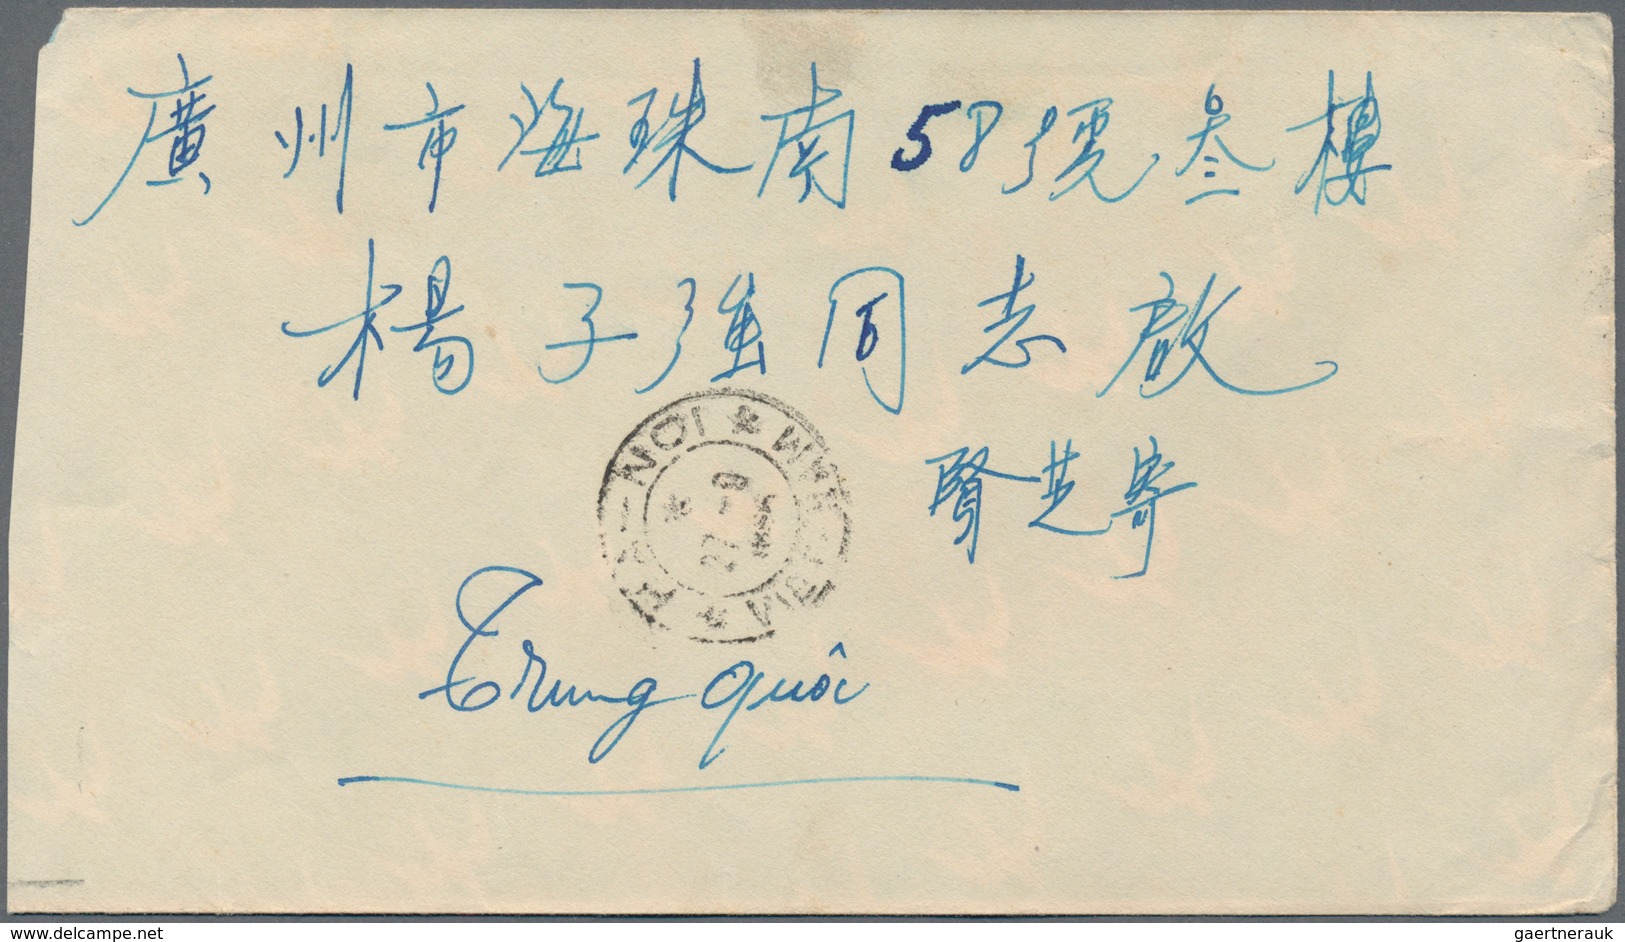 廣州市海珠南58號叁樓
楊子強同志啟
賢芝寄
HA-NOI * VIET-NAM *
27-9
Trung quôc
delcampe.net
gaertnerauk